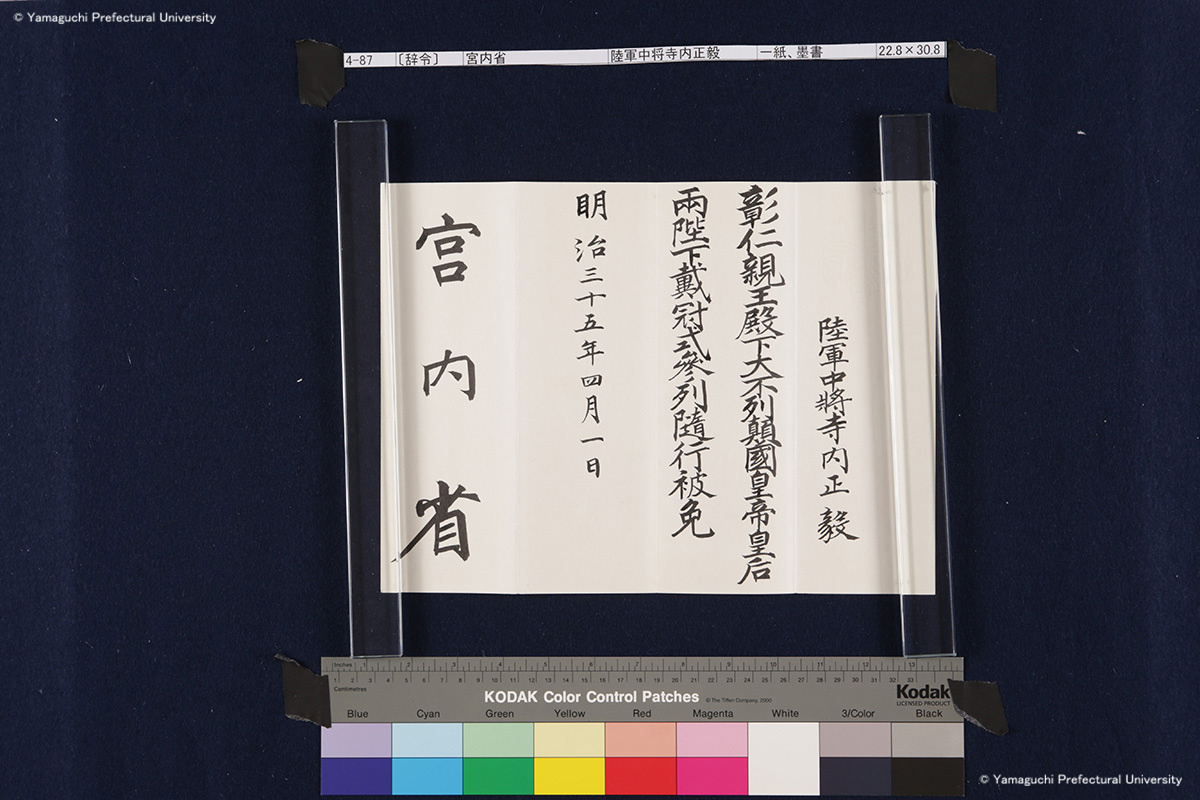 © Yamaguchi Prefectural University
4-87 〔辞令〕 宮内省 陸軍中将寺内正毅 一紙、墨書 22.8×30.8
陸軍中將寺内正毅
彰仁親王殿下大不列顛國皇帝皇后
兩陛下戴冠式參列隨行被免
明治三十五年四月一日
宮内省
Inches 1 2 3 4 5 6 7 8 9 10 11 12 13
Centimetres 1 2 3 4 5 6 7 8 9 10 11 12 13 14 15 16 17 18 19 20 21 22 23 24 25 26 27 28 29 30 31 32 33
KODAK Color Control Patches © The Tiffen Company, 2000
Kodak
LICENSED PRODUCT
Blue Cyan Green Yellow Red Magenta White 3/Color Black
© Yamaguchi Prefectural University